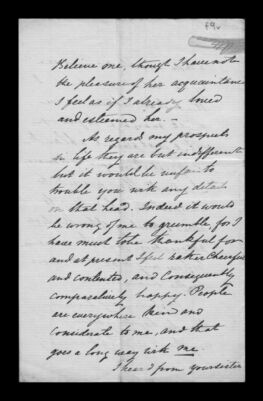 69v
Believe me, though I have not
the pleasure of her acquaintance
I feel as if I already loved
and esteemed her. —
As regards my prospects
in life they are but indifferent
but it would be unfair to
trouble you with any details
on that head. Indeed it would
be wrong of me to grumble, for I
have much to be thankful for
and at present I feel rather Cheerful
and contented, and Consequently
comparatively happy. People
are everywhere kind and
Considerate to me, and that
goes a long way with me.
I hear from your sister